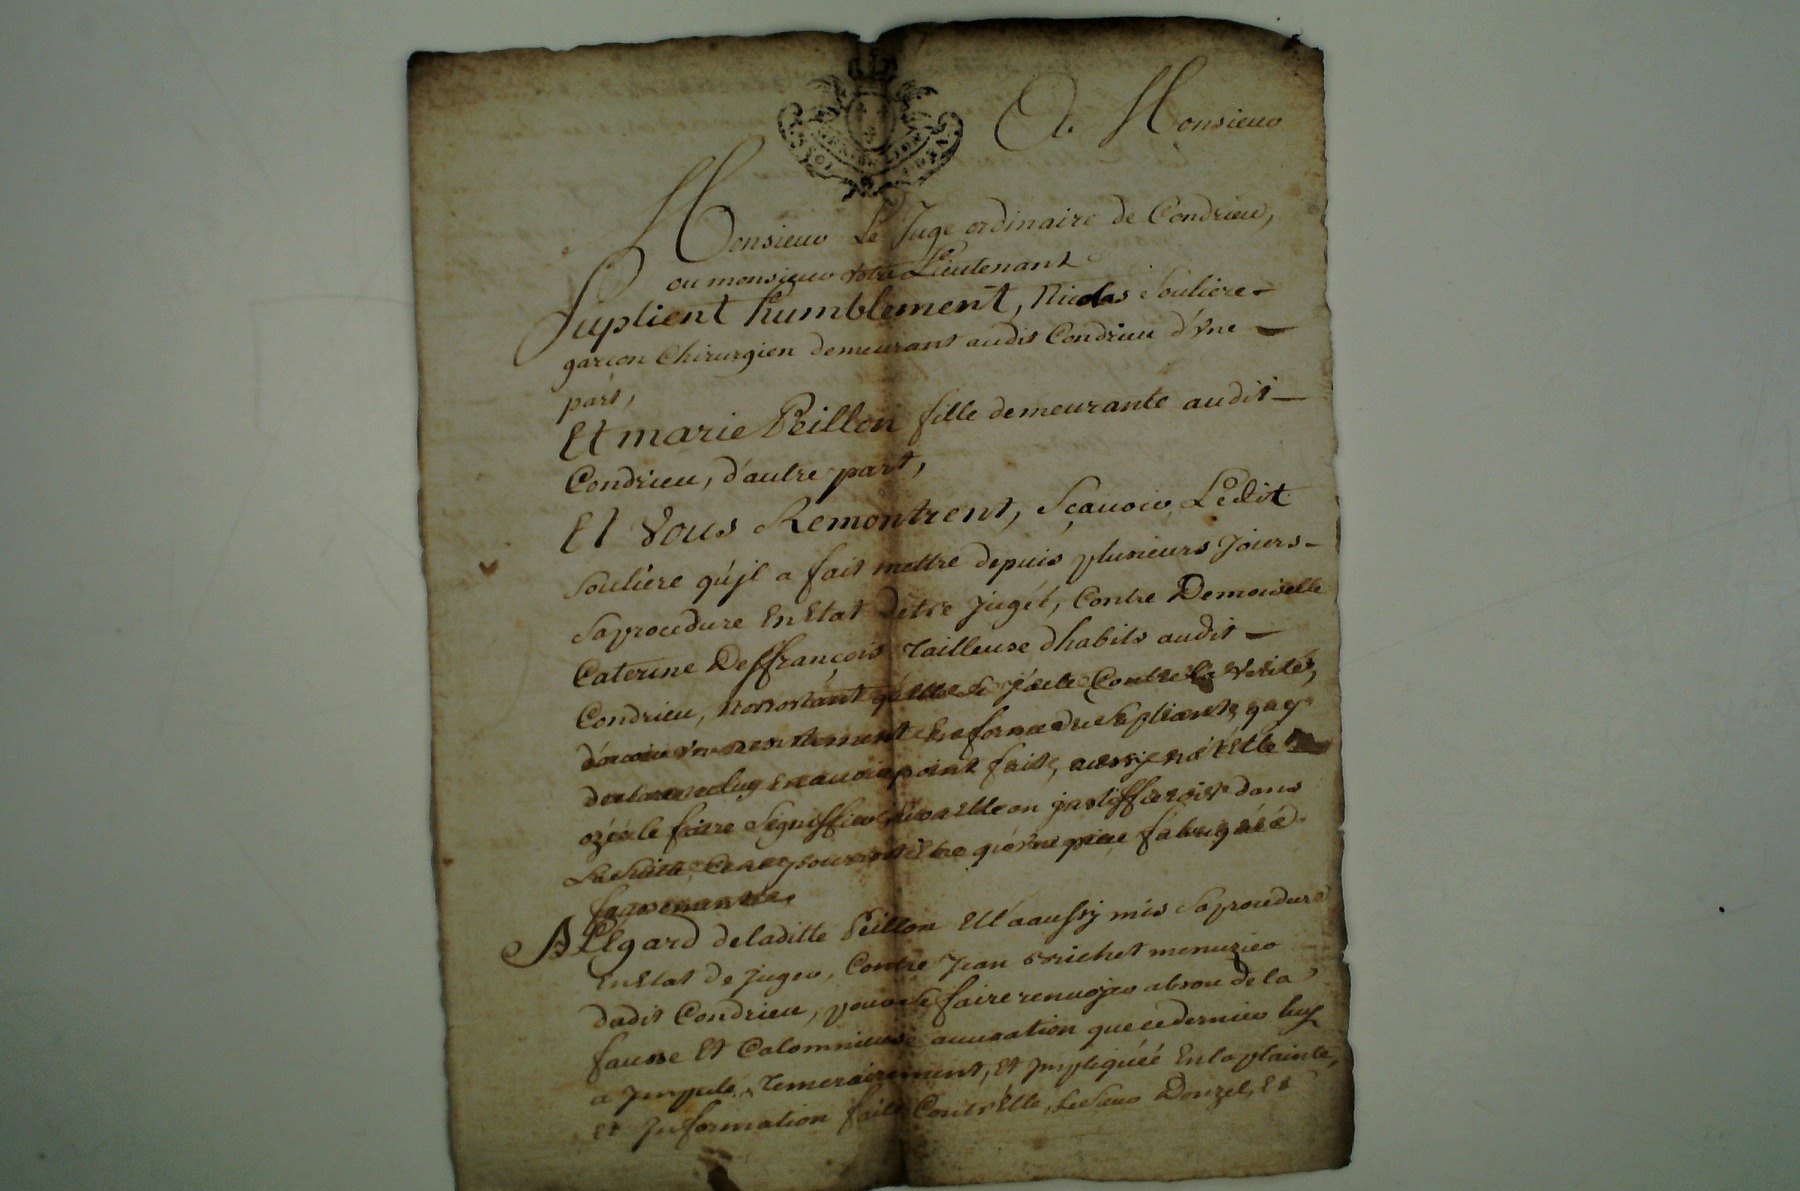 A. Monsieur
Monsieur Le Juge ordinaire de Condrieu,
ou monsieur votre Lieutenant
Suplient humblement, Nicolas Souliere
garçon Chirurgien demeurant audit Condrieu d'Vne
part,
Et marie Peillon fille demeurante audit
Condrieu, d'autre part,
Et Vous Remontrent, Sçauoir, Ledit
Souliere qu'jl a fait mettre depuis plusieurs Jours
Sa procedure En Etat detre Jugéé, Contre Demoiselle
Caterine Deffrançois Tailleuse dhabits audit
Condrieu, Contre La Verité,
point faite,
le faire Signiffier justiffieroit dans
La Suitte, qu'Vne piece fabriquéé
A L'Egard de laditte Peillon Ell'a aussy mis Sa procedure
En Etat de Juger, Contre Jean menuzier
dudit Condrieu, pour se faire renuoyer absou de la
fausse Et Calomnieuse accusation que ce dernier luy
a Jmputé Temerairement, Et Jmpliquéé En la plainte,
Et Jnformation faite Contr'Elle, Le Sieur Donzel, Et